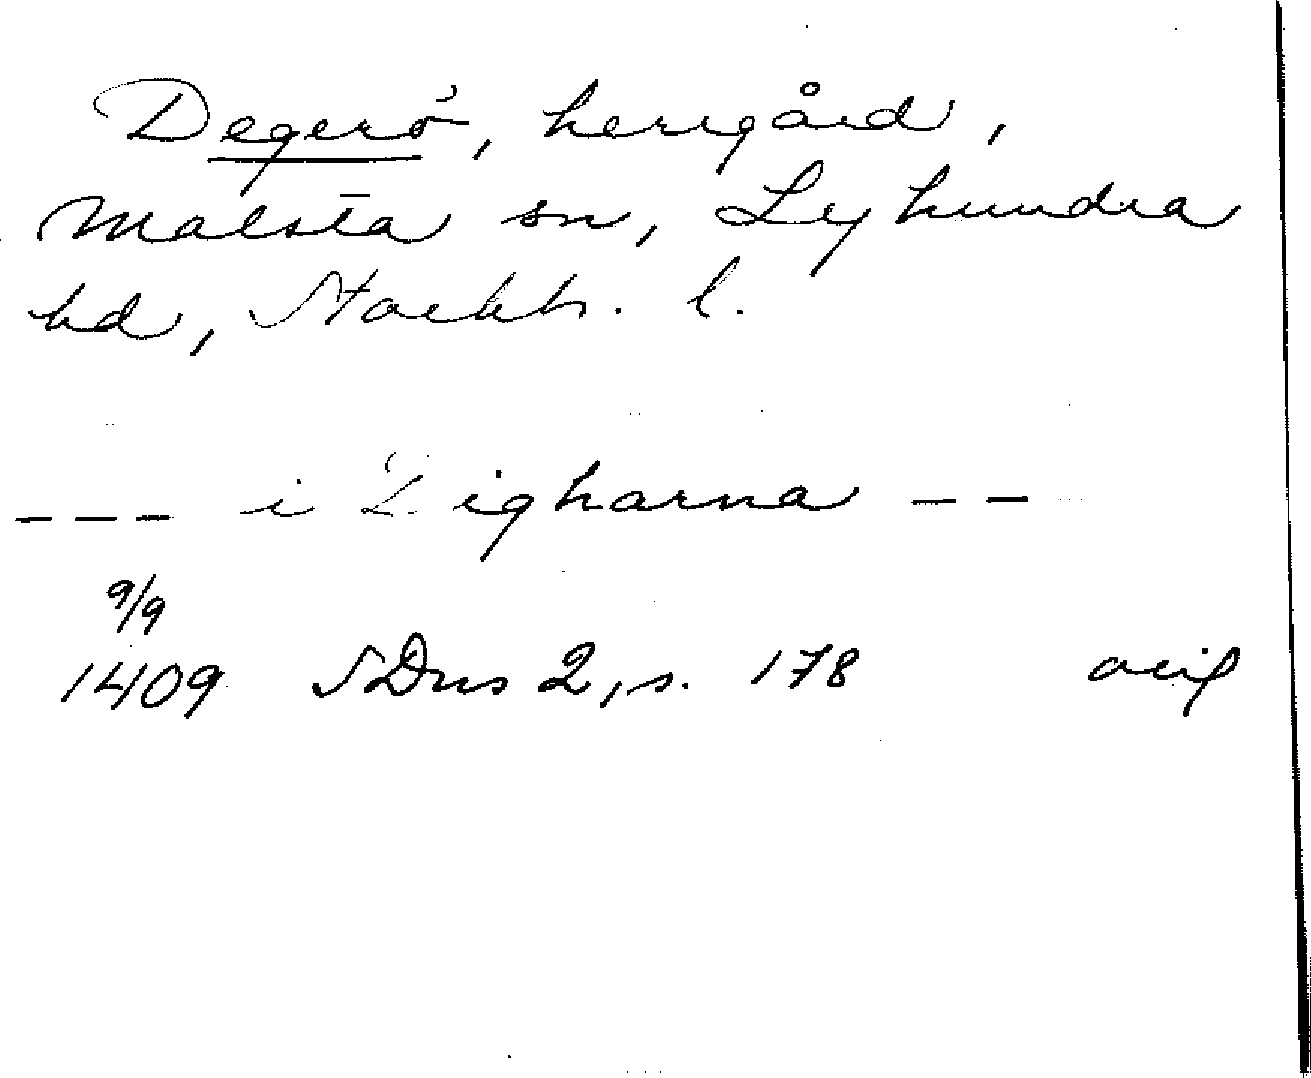 Degerö, herrgård,
Malsta sn, Lyhundra
hd, Stockh. l.
--- i Digharna --
9/9
1409 SDns 2, s. 178 avif